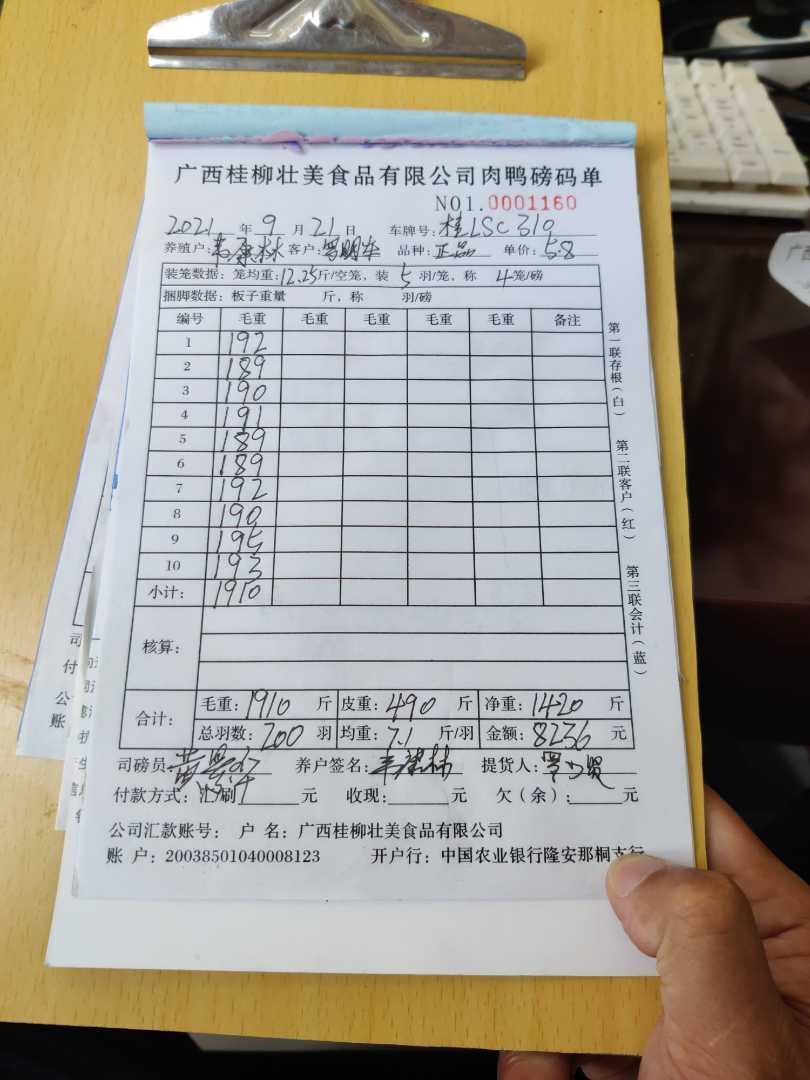 广西桂柳壮美食品有限公司肉鸭磅码单
NO1.0001160
2021 年 9 月 21 日 车牌号: 桂LSC310
养殖户: 客户: 罗明华 品种: 正品 单价: 5.8
装笼数据: 笼均重: 12.25 斤/空笼, 装 5 羽/笼, 称 4 笼/磅
捆脚数据: 板子重量 斤, 称 羽/磅
编号 毛重 毛重 毛重 毛重 毛重 备注
1 192
2 189
3 190
4 191
5 189
6 189
7 192
8 190
9 195
10 193
小计: 1910
核算:
合计: 毛重: 1910 斤 皮重: 490 斤 净重: 1420 斤
总羽数: 200 羽 均重: 7.1 斤/羽 金额: 8236 元
司磅员 养户签名: 提货人:
付款方式: 汇/刷 元 收现: 元 欠(余): 元
公司汇款账号: 户 名: 广西桂柳壮美食品有限公司
账 户: 20038501040008123 开户行: 中国农业银行隆安那桐支行
第一联存根(白)
第二联客户(红)
第三联会计(蓝)